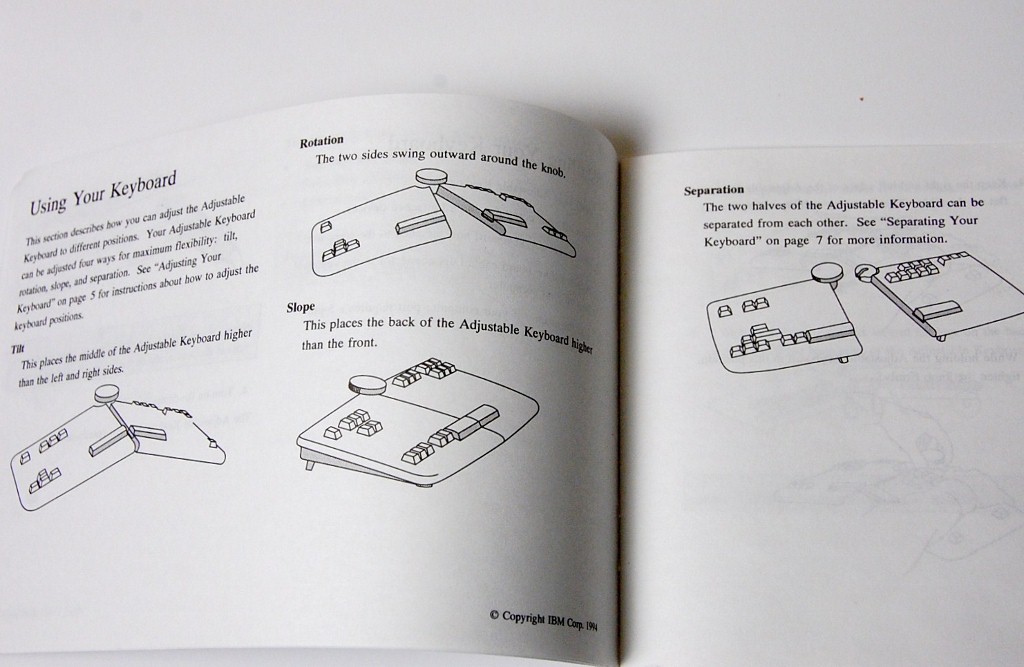 Using Your Keyboard
This section describes how you can adjust the Adjustable
Keyboard to different positions. Your Adjustable Keyboard
can be adjusted four ways for maximum flexibility: tilt,
rotation, slope, and separation. See “Adjusting Your
Keyboard” on page 5 for instructions about how to adjust the
keyboard positions.
Tilt
This places the middle of the Adjustable Keyboard higher
than the left and right sides.
Rotation
The two sides swing outward around the knob.
Slope
This places the back of the Adjustable Keyboard higher
than the front.
© Copyright IBM Corp. 1994
Separation
The two halves of the Adjustable Keyboard can be
separated from each other. See “Separating Your
Keyboard” on page 7 for more information.